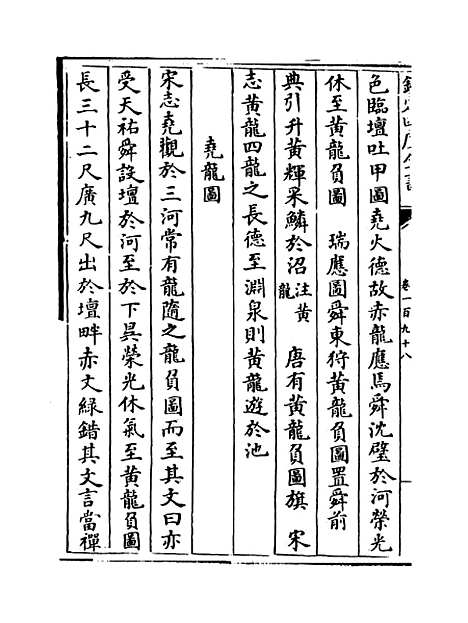 欽定四庫全書
卷一百九十八
色臨壇吐甲圖堯火德故赤龍應馬舜沈璧於河榮光
休至黃龍負圖　瑞應圖舜東狩黃龍負圖置舜前
典引升黃輝采鱗於沼注黃龍　唐有黃龍負圖旗　宋
志黃龍四龍之長德至淵泉則黃龍遊於池
堯龍圖
宋志堯觀於三河常有龍隨之龍負圖而至其文曰亦
受天祐舜設壇於河至於下昃榮光休氣至黃龍負圖
長三十二尺廣九尺出於壇畔赤文綠錯其文言當禪